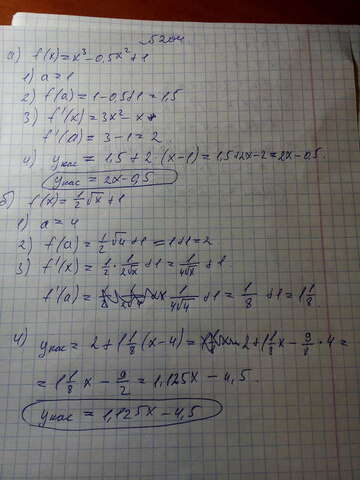 а) f(x)=x³-0,5x²+1
1) a=1
2) f(a)=1-0,5+1=1,5
3) f'(x)=3x²-x
f'(a)=3-1=2
4) yкас=1,5+2·(x-1)=1,5+2x-2=2x-0,5.
yкас=2x-0,5
б) f(x)=½√x+1
1) a=4
2) f(a)=½√4+1=1+1=2
3) f'(x)=½·1/(2√x)+1=1/(4√x)+1.
f'(a)=1/(4√4)+1=1/8+1=1 1/8
4) yкас=2+1 1/8(x-4)=2+1 1/8x-9/8·4=
=1 1/8x-9/2=1,125x-4,5.
yкас=1,125x-4,5